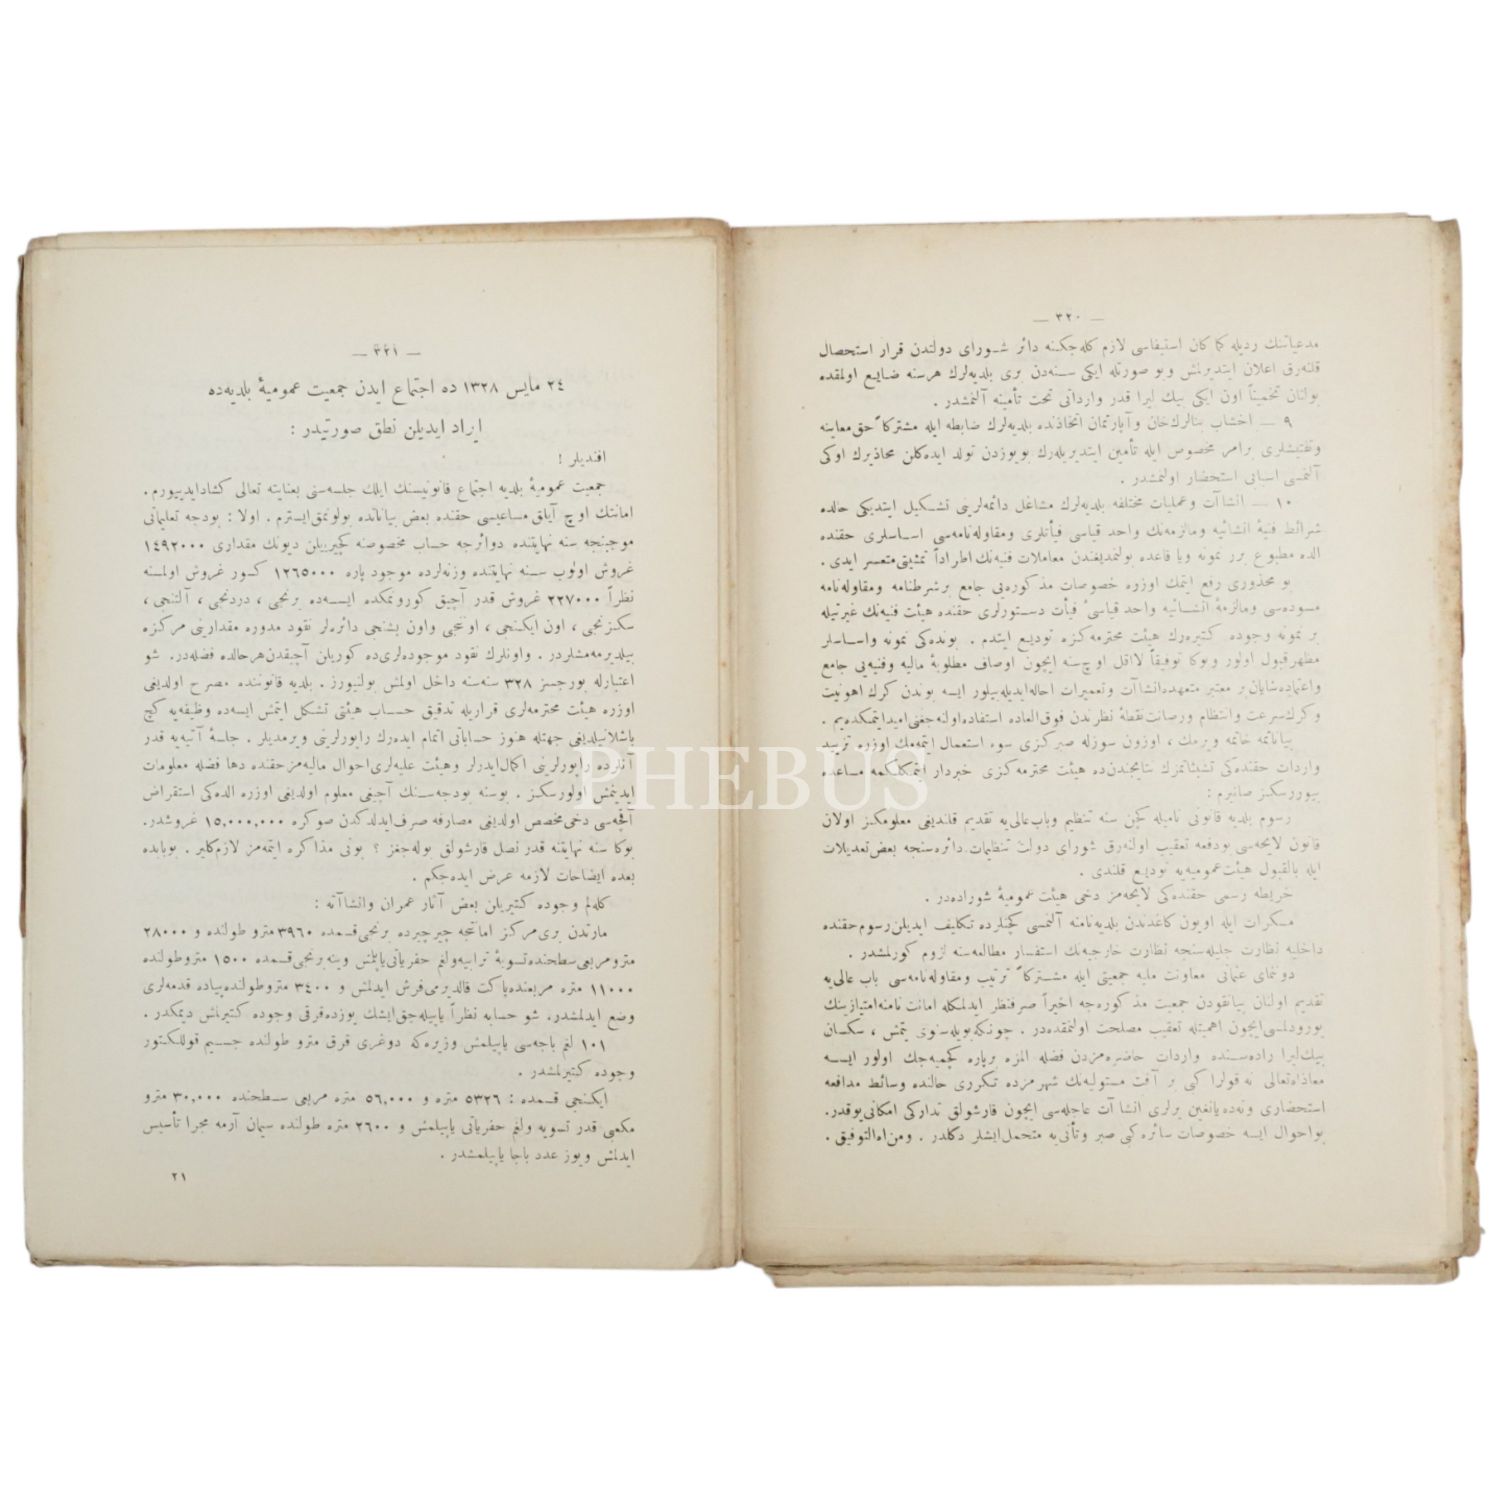 — ٣٢٠ —
مدعياتنك رديله كما كان استيفاسى لازم كله‌جكنه دائر شوراى دولتدن قرار استحصال
قلنه‌رق اعلان ايتديرلمش وبو صورتله ايكى سنه‌دن برى بلديه‌لرك هرسنه ضايع اولمقده
بولنان تخميناً اون ايكى بيك ليرا قدر وارداتى تحت تأمينه آلنمشدر .
٩ — اخشاب بنالرك خان وآپارتمان اتخاذنده بلديه‌لرك ضابطه ايله مشتركاً حق معاينه
وتفتيشلرى برامر مخصوص ايله تأمين ايتديريله‌رك بويوزدن تولد ايده‌كلن محاذيرك اوكى
آلنمسى اسبابى استحضار اولنمشدر .
١٠ — انشاآت وعمليات مختلفه بلديه‌لرك مشاغل دائمه‌لرينى تشكيل ايتديكى حالده
شرائط فنيهٔ انشائيه ومالزمه‌نك واحد قياسى فيأتلرى ومقاوله‌نامه‌سى اساسلرى حقنده
الده مطبوع برر نمونه ويا قاعده بولنمديغندن معاملات فنيه‌نك اطراداً تمشيتى متعسر ايدى .
بو محذورى رفع ايتمك اوزره خصوصات مذكوره‌يى جامع برشرطنامه ومقاوله‌نامه
مسوده‌سى ومالزمهٔ انشائيه واحد قياسىٔ فيأت دستورلرى حقنده هيئت فنيه‌نك غيرتيله
بر نمونه وجوده كتيره‌رك هيئت محترمه‌كزه توديع ايتدم . بونده‌كى نمونه واساسلر
مظهر قبول اولور وبوكا توفيقاً لااقل اوچ سنه ايچون اوصاف مطلوبهٔ ماليه وفنيه‌يى جامع
واعتماده شايان بر معتبر متعهده انشاآت وتعميرات احاله ايديله‌بيلور ايسه بوندن كرك اهونيت
وكرك سرعت وانتظام ورصانت نقطهٔ نظرندن فوق العاده استفاده اولنه‌جغنى اميد ايتمكده‌يم .
بياناتمه خاتمه ويرمك ، اوزون سوزله صبركزى سوء استعمال ايتمه‌مك اوزره تزييد
واردات حقنده‌كى تشبثاتمزك نتايجندن‌ده هيئت محترمه‌كزى خبردار ايتمكلكمه مساعده
بيوررسكز صانيرم :
رسوم بلديه قانونى ناميله كچن سنه تنظيم وباب عالى‌يه تقديم قلنديغى معلومكز اولان
قانون لايحه‌سى بودفعه تعقيب اولنه‌رق شوراى دولت تنظيمات دائره‌سنجه بعض تعديلات
ايله بالقبول هيئت عموميه‌يه توديع قلندى .
خريطه رسمى حقنده‌كى لايحه‌مز دخى هيئت عموميهٔ شوراده‌در .
مسكرات ايله اويون كاغدندن بلديه نامنه آلنمسى كچنلرده تكليف ايديلن رسوم حقنده
داخليه نظارت جليله‌سنجه نظارت خارجيه‌نك استفسار مطالعه‌سنه لزوم كورلمشدر .
دونماى عثمانى معاونت مليه جمعيتى ايله مشتركاً ترتيب ومقاوله‌نامه‌سى باب عالى‌يه
تقديم اولنان پيانقودن جمعيت مذكوره‌جه اخيراً صرفنظر ايدلمكله امانت نامنه امتيازينك
بورودلمسى ايچون اهميتله تعقيب مصلحت اولنمقده‌در . چونكه بويله سنوى يتمش ، سكسان
بيك ليرا راده‌سنده واردات حاضره‌مزدن فضله المزه برپاره كچميه‌جك اولور ايسه
معاذاه تعالى نه قولرا كبى بر آفت مستوليه‌نك شهرمزده تكررى حالنده وسائط مدافعه
استحضارى ونه‌ده يانغين يرلرى انشاآت عاجله‌سى ايچون قارشولق تداركى امكانى يوقدر .
بواحوال ايسه خصوصات سائره كبى صبر وتأنى‌يه متحمل ايشلر دكلدر . ومن اه التوفيق .
— ٣٢١ —
٢٤ مايس ١٣٢٨ ده اجتماع ايدن جمعيت عموميهٔ بلديه‌ده
ايراد ايديلن نطق صورتيدر :
افنديلر !
جمعيت عموميهٔ بلديه اجتماع قانونيسنك ايلك جلسه‌سنى بعنايته تعالى كشاد ايدييورم .
امانتك اوچ آيلق مساعيسى حقنده بعض بياناتده بولونمق ايسترم . اولا : بودجه تعليماتى
موجبنجه سنه نهايتنده دوائرجه حساب مخصوصنه كچيريلن ديونك مقدارى ١٤٩٢٠٠٠
غروش اولوب سنه نهايتنده وزنه‌لرده موجود پاره ١٢٦٥٠٠٠ كسور غروش اولمسنه
نظراً ٢٢٧٠٠٠ غروش قدر آچيق كورونمكده ايسه‌ده برنجى ، دردنجى ، آلتنجى ،
سكزنجى ، اون ايكنجى ، اونجى واون بشنجى دائره‌لر نقود مدوره مقدارينى مركزه
بيلديرمه‌مشلردر . واونلرك نقود موجوده‌لرى‌ده كوريلن آچيقدن هرحالده فضله‌در . شو
اعتبارله بورجسز ٣٢٨ سنه‌سنه داخل اولمش بولنيورز . بلديه قانوننده مصرح اولديغى
اوزره هيئت محترمه‌لرى قراريله تدقيق حساب هيئتى تشكل ايتمش ايسه‌ده وظيفه‌يه كچ
باشلانيلديغى جهتله هنوز حساباتى اتمام ايده‌رك راپورلرينى ويرمديلر . جلسهٔ آتيه‌يه قدر
آنلرده راپورلرينى اكمال ايدرلر وهيئت عليه‌لرى احوال ماليه‌مز حقنده دها فضله معلومات
ايدنمش اولورسكز . بوسنه بودجه‌سنك آچيغى معلوم اولديغى اوزره الده‌كى استقراض
آقچه‌سى دخى مخصص اولديغى مصارفه صرف ايدلدكدن صوكره ١٥,٠٠٠,٠٠٠ غروشدر.
بوكا سنه نهايتنه قدر نصل قارشولق بوله‌جغز ؟ بونى مذاكره ايتمه‌مز لازم‌كلير . بوبابده
بعده ايضاحات لازمه عرض ايده‌جكم .
كله‌لم وجوده كتيريلن بعض آثار عمران وانشاآته :
مارتدن برى مركز امانتجه چيرچيرده برنجى قسمده ٣٩٦٠ مترو طولنده و ٢٨٠٠٠
مترو مربعى سطحنده تسويهٔ ترابيه ولغم حفرياتى ياپلمش وينه برنجى قسمده ١٥٠٠ متروطولنده
١١٠٠٠ متره مربعنده پاكت قالديرمى فرش ايدلمش و ٣٤٠٠ متروطولنده پياده قدمه‌لرى
وضع ايدلمشدر. شو حسابه نظراً ياپيله‌جق ايشك يوزده قرقى وجوده كتيرلمش ديمكدر .
١٠١ لغم باجه‌سى ياپيلمش وزيره‌كه دوغرى قرق مترو طولنده جسيم قوللكتور
وجوده كتيرلمشدر .
ايكنجى قسمده : ٥٣٢٦ متره و ٥٦,٠٠٠ متره مربعى سطحنده ٣٠,٠٠٠ مترو
مكعبى قدر تسويه ولغم حفرياتى ياپيلمش و ٢٦٠٠ متره طولنده سيمان آرمه مجرا تأسيس
ايدلمش ويوز عدد باجا ياپيلمشدر .
٢١
PHEBUS